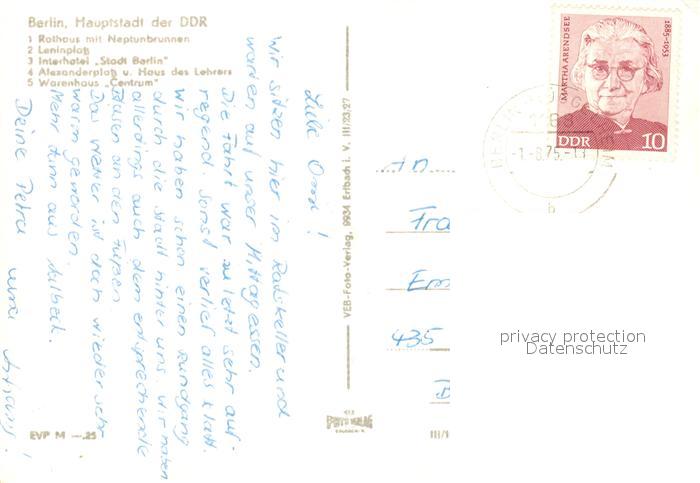 Berlin, Hauptstadt der DDR
1 Rathaus mit Neptunbrunnen
2 Leninplatz
3 Interhotel „Stadt Berlin"
4 Alexanderplatz u. Haus des Lehrers
5 Warenhaus „Centrum"
Liebe Omi!
Wir sitzen hier im Ratskeller und
warten auf unser Mittagessen.
Die Fahrt war zuletzt sehr auf-
regend. Sonst verlief alles glatt.
Wir haben schon einen Rundgang
durch die Stadt hinter uns. Wir haben
allerdings auch dem entsprechende
Blasen an den Füßen.
Das Wetter ist doch wieder sehr
warm geworden.
Mehr dann aus
Deine Petra und
EVP M —.25
VEB-Foto-Verlag, 9934 Erlbach i. V. III/23/27
III/1
MARTHA ARENDSEE
1885-1953
DDR
10
-1.-8.75.-
b
An
Fra
Em
435
privacy protection
Datenschutz